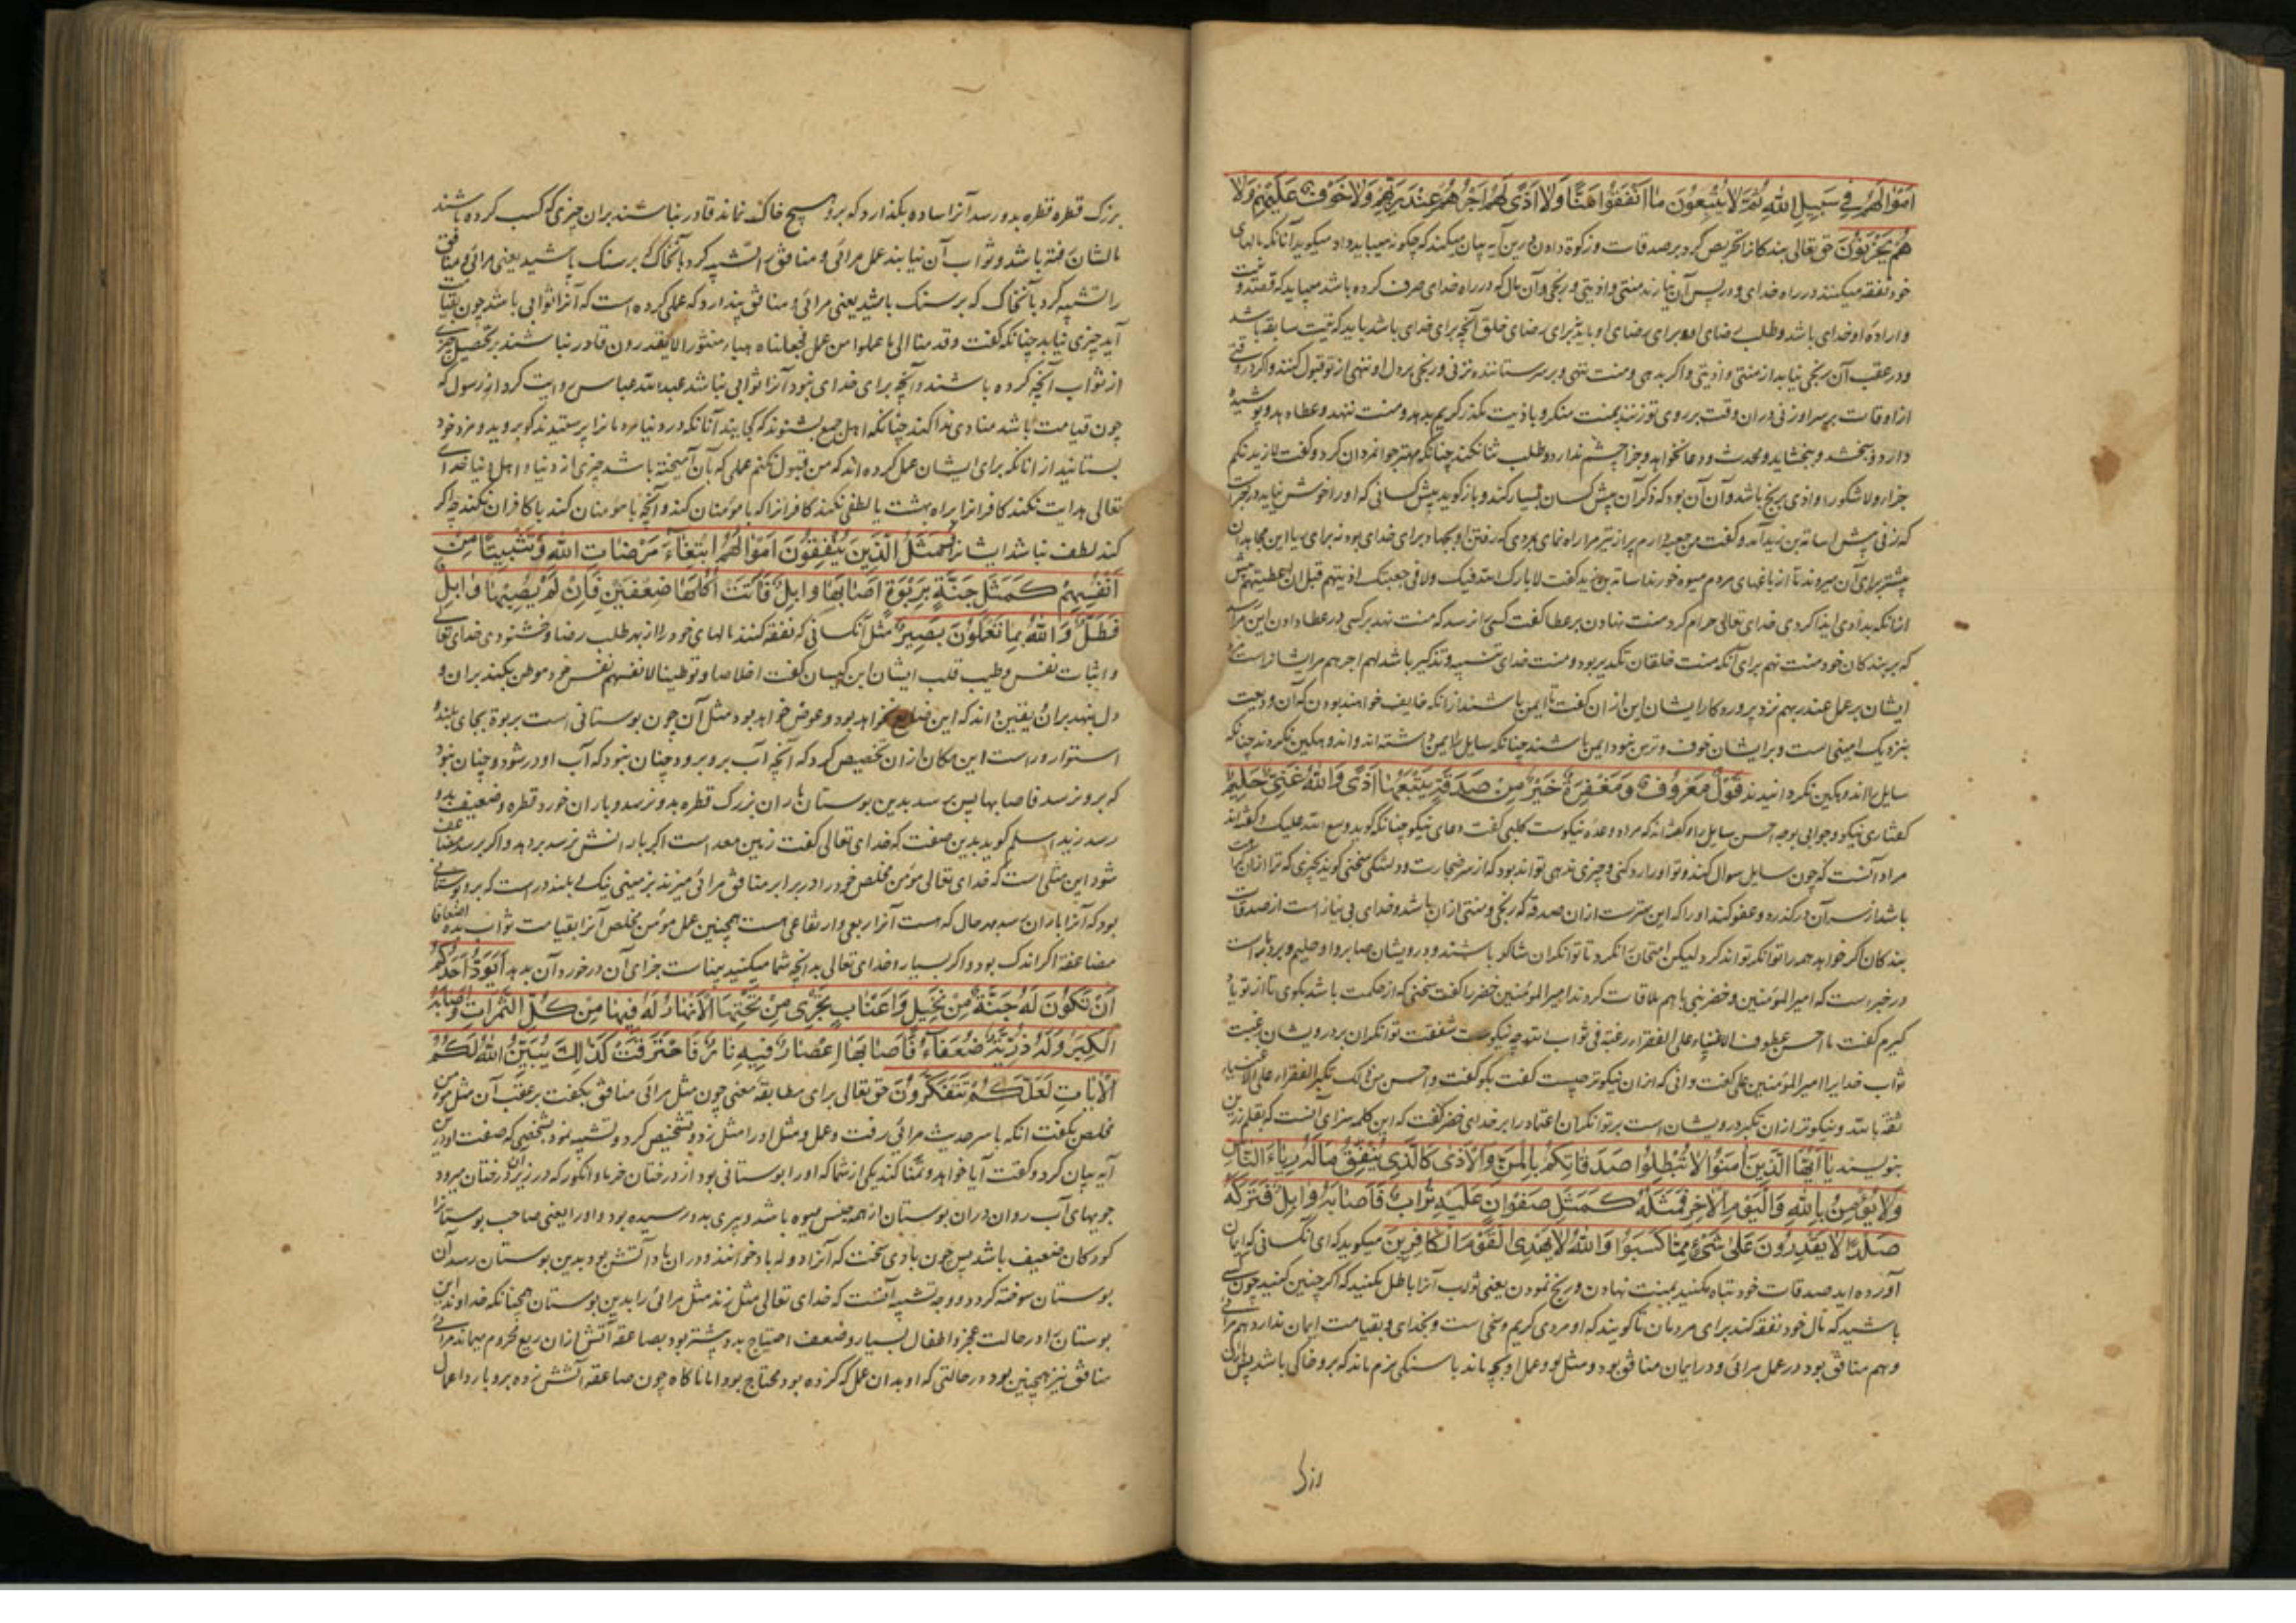 اَمْوَالَهُمْ فِي سَبِيلِ اللهِ ثُمَّ لَا يُتْبِعُونَ مَا اَنْفَقُوا مَنًّا وَلَا اَذًى لَهُمْ اَجْرُهُمْ عِنْدَ رَبِّهِمْ وَلَا خَوْفٌ عَلَيْهِمْ وَلَا
هُمْ يَحْزَنُونَ حق تعالی بندکانرا تحریص کرد بر صدقات و زکوة دادن درین آیه بیان میکند که چکونه میباید داد میکوید آنانکه مالهای
خود نفقه میکنند در راه خدای و در پس آن نیارند منتی و اذیتی و رنجی و آن مال که در راه خدای صرف کرده باشد میباید که قصد و نیت
و اراده او خدای باشد و طلب رضای او برای رضای او باید نه برای رضای خلق آنچه برای خدای باشد باید که نیت سابقه باشد
و در عقب آن رنجی نیاید از منتی و اذیتی و اکر بدهی و منت نهی و بر سر ستاننده نزنی و رنجی بر دل او ننهی از تو قبول کنند و اکر در وقتی
از اوقات بر سر او زنی دران وقت بر روی تو زنند بمنت منکر و باذیت مکذر کریم بدهد و منت ننهد و عطا دهد و پوشیده
دارد و ببخشد و ببخشاید و محمدت و دعا نخواهد و جزا چشم ندارد و طلب ثنا نکند چنانکه مهتر جوانمردان کرد و کفت لا نرید منکم
جزاء و لا شکورا و اذی رنج باشد و آن آن بود که ذکر آن پیش کسان بسیار کند و باز کوید پیش کسانی که او را خوش نیاید در خبرست
که زنی پیش اسامه بن زید آمد و کفت من جعبه دارم پر از تیر مرا راه نمای بمردی که رفتن او بجهاد برای خدای بود نه برای ریا این مجاهدان
بیشتر برای آن میروند تا از باغهای مردم میوه خورند اسامه بن زید کفت لا بارک الله فیک و لا فی جعبتک اذیتهم قبل ان اعطیتهم پیش
ازانکه بدادی ایذا کردی خدای تعالی حرام کرد منت نهادن بر عطا کفت کسی را نرسد که منت نهد بر کسی در عطا دادن این مراست
که بر بندکان خود منت نهم برای آنکه منت خلقان تکدیر بود و منت خدای تنبیه و تذکیر باشد لهم اجرهم مر ایشانراست مزد
ایشان بر عمل عند ربهم نزد پروردکار ایشان این ازان کفت تا ایمن باشند ازانکه خایف خواهند بودن که آن ودیعت
بنزدیک امینی است و بر ایشان خوف و ترس نبود ایمن باشند چنانکه سایل را ایمن داشته اند و اندوهکین نکردند چنانکه
سایل را اندوهکین نکردانیدند قَوْلٌ مَعْرُوفٌ وَمَغْفِرَةٌ خَيْرٌ مِنْ صَدَقَةٍ يَتْبَعُهَا اَذًى وَاللهُ غَنِيٌّ حَلِيمٌ
کفتاری نیکو و جوابی بوجه احسن سایل را و کفته اند که مراد وعده نیکوست کلبی کفت دعای نیکو چنانکه کوید وسع الله علیک و کفته اند
مراد آنست که چون سایل سوال کند و تو او را رد کنی و چیزی ندهی تواند بود که از سر ضجارت و دلتنکی سخنی کوید چیزی که ترا ازان کراهت
باشد از سر آن درکذرد و عفو کند او را که این بهترست ازان صدقه که رنجی و منتی ازان باشد و خدای بی نیاز است از صدقات
بندکان اکر خواهد همه را توانکر تواند کرد لیکن امتحان را نکرد تا توانکران شاکر باشند و درویشان صابر و او حلیم و بردبار است
در خبر است که امیر المؤمنین و خضر نبی باهم ملاقات کردند امیر المؤمنین خضر را کفت سخنی که از حکمت باشد بکوی تا از تو یاد
کیرم کفت ما احسن عطوف الاغنیاء علی الفقراء رغبة فی ثواب الله چه نیکوست شفقت توانکران بر درویشان رغبت
ثواب خدایرا امیر المؤمنین علی کفت دانی که ازان نیکوتر چیست کفت بکو کفت و احسن من ذلک تکبر الفقراء علی الاغنیاء
ثقة بالله و نیکوتر ازان تکبر درویشان است بر توانکران اعتماد را بر خدای خضر کفت که این کلمه سزای آنست که بقلم زرین
بنویسند يَا اَيُّهَا الَّذِينَ اٰمَنُوا لَا تُبْطِلُوا صَدَقَاتِكُمْ بِالْمَنِّ وَالْاَذٰى كَالَّذِي يُنْفِقُ مَالَهُ رِئَاءَ النَّاسِ
وَلَا يُؤْمِنُ بِاللهِ وَالْيَوْمِ الْاٰخِرِ فَمَثَلُهُ كَمَثَلِ صَفْوَانٍ عَلَيْهِ تُرَابٌ فَاَصَابَهُ وَابِلٌ فَتَرَكَهُ
صَلْدًا لَا يَقْدِرُونَ عَلٰى شَيْءٍ مِمَّا كَسَبُوا وَاللهُ لَا يَهْدِي الْقَوْمَ الْكَافِرِينَ میکوید که ای آنکسانی که ایمان
آورده اید صدقات خود تباه مکنید بمنت نهادن و رنج نمودن یعنی ثواب آنرا باطل مکنید که اکر چنین کنید چون کسی
باشید که مال خود نفقه کند برای مردمان تا کویند که او مردی کریم و سخی است و بخدای و بقیامت ایمان ندارد هم مرائی
و هم منافق بود در عمل مرائی و در ایمان منافق بود و مثل او و عمل او بچه ماند با سنکی نرم ماند که برو خاکی باشد پس باران
بزرک قطره قطره بدو رسد آنرا ساده بکذارد که برو هیچ خاک نماند قادر نباشند بران چیزی که کسب کرده باشند
را تشبیه کرد بآنخاک که بر سنک باشد یعنی مرائی و منافق پندارد که عملی کرده است که آنرا ثوابی باشد چون بقیامت
آید چیزی نیابد چنانکه کفت و قدمنا الی ما عملوا من عمل فجعلناه هباء منثورا لا یقدرون قادر نباشند بر تحصیل چیزی
از ثواب آنچه کرده باشند و آنچه برای خدای نبود آنرا ثوابی نباشد عبدالله عباس روایت کرد از رسول که
چون قیامت باشد منادی ندا کند چنانکه اهل جمع بشنوند که کجایند آنانکه در دنیا مردمانرا پرستیدند کو بروید و مزد خود
بستانید از انانکه برای ایشان عمل کرده اند که من قبول نکنم عملی که بآن آمیخته باشد چیزی از دنیا و اهل دنیا خدای
تعالی هدایت نکند کافرانرا براه بهشت یا لطفی نکند کافرانرا که با مؤمنان کند و آنچه با مؤمنان کند با کافران نکند چه اکر
کند لطف نباشد ایشانرا وَمَثَلُ الَّذِينَ يُنْفِقُونَ اَمْوَالَهُمُ ابْتِغَاءَ مَرْضَاتِ اللهِ وَتَثْبِيتًا مِنْ
اَنْفُسِهِمْ كَمَثَلِ جَنَّةٍ بِرَبْوَةٍ اَصَابَهَا وَابِلٌ فَاٰتَتْ اُكُلَهَا ضِعْفَيْنِ فَاِنْ لَمْ يُصِبْهَا وَابِلٌ
فَطَلٌّ وَاللهُ بِمَا تَعْمَلُونَ بَصِيرٌ مثل آنکسانی که نفقه کنند مالهای خود را از بهر طلب رضا و خشنودی خدای تعالی
و اثبات نفس و طیب قلب ایشان ابن کیسان کفت اخلاصا و توطینا لانفسهم نفس خود موطن بکنند بران و
دل بنهد بران و یقین داند که این ضایع نخواهد بود و عوض خواهد بود مثل آن چون بوستانی است بربوة بجای بلند
استوار و راست این مکان ازان تخصیص کرد که آنچه آب برو برود چنان نبود که آب او در شود و چنان نبود
که برو نرسد فاصابها پس برسد بدین بوستان باران بزرک قطره بدو نرسد و باران خورد قطره و ضعیف بدو
رسد زید اسلم کوید بدین صفت که خدای تعالی کفت زمین معد است اکر بارانش نرسد بر دهد و اکر برسد مضاعف
شود این مثلی است که خدای تعالی مؤمن مخلص خود را در برابر منافق مرائی میزند بزمینی نیک بلند دراست که برو بوستانی
بود که آنرا باران رسد بهر حال که هست آنرا ریعی و ارتفاعی هست همچنین عمل مؤمن مخلص آنرا بقیامت ثواب بدهد اضعافا
مضاعفة اکر اندک بود و اکر بسیار و خدای تعالی بدانچه شما میکنید بیناست جزای آن در خورد آن بدهد اَيَوَدُّ اَحَدُكُمْ
اَنْ تَكُونَ لَهُ جَنَّةٌ مِنْ نَخِيلٍ وَاَعْنَابٍ تَجْرِي مِنْ تَحْتِهَا الْاَنْهَارُ لَهُ فِيهَا مِنْ كُلِّ الثَّمَرَاتِ وَاَصَابَهُ
الْكِبَرُ وَلَهُ ذُرِّيَّةٌ ضُعَفَاءُ فَاَصَابَهَا اِعْصَارٌ فِيهِ نَارٌ فَاحْتَرَقَتْ كَذٰلِكَ يُبَيِّنُ اللهُ لَكُمُ
الْاٰيَاتِ لَعَلَّكُمْ تَتَفَكَّرُونَ حق تعالی برای مطابقه معنی چون مثل مرائی منافق بکفت بر عقب آن مثل مؤمن
مخلص بکفت انکه با سر حدیث مرائی رفت و عمل و مثل او را مثل زد و تشخیص کرد و تشبیه نمود بشخصی که صفت او درین
آیه بیان کرد و کفت آیا خواهد و تمنا کند یکی از شما که او را بوستانی بود از درختان خرما و انکور که در زیر آن درختان میرود
جویهای آب روان دران بوستان از همه جنس میوه باشد و پیری بدو رسیده بود و او را یعنی صاحب بوستانرا
کودکان ضعیف باشد پس چون بادی سخت که آنرا دوله باد خوانند و دران باد آتش بود بدین بوستان رسد آن
بوستان سوخته کردد و وجه تشبیه آنست که خدای تعالی مثل زند مثل مرائی را بدین بوستان همچنانکه خداوند این
بوستان را در حالت عجز و اطفال بسیار و ضعف احتیاج بدو بیشتر بود بصاعقه آتش ازان ریع محروم میماند مرائی
منافق نیز همچنین بود در حالتی که او بدان عمل که کرده بود محتاج بود اما ناکاه چون صاعقه آتش زده برو باردا عمال